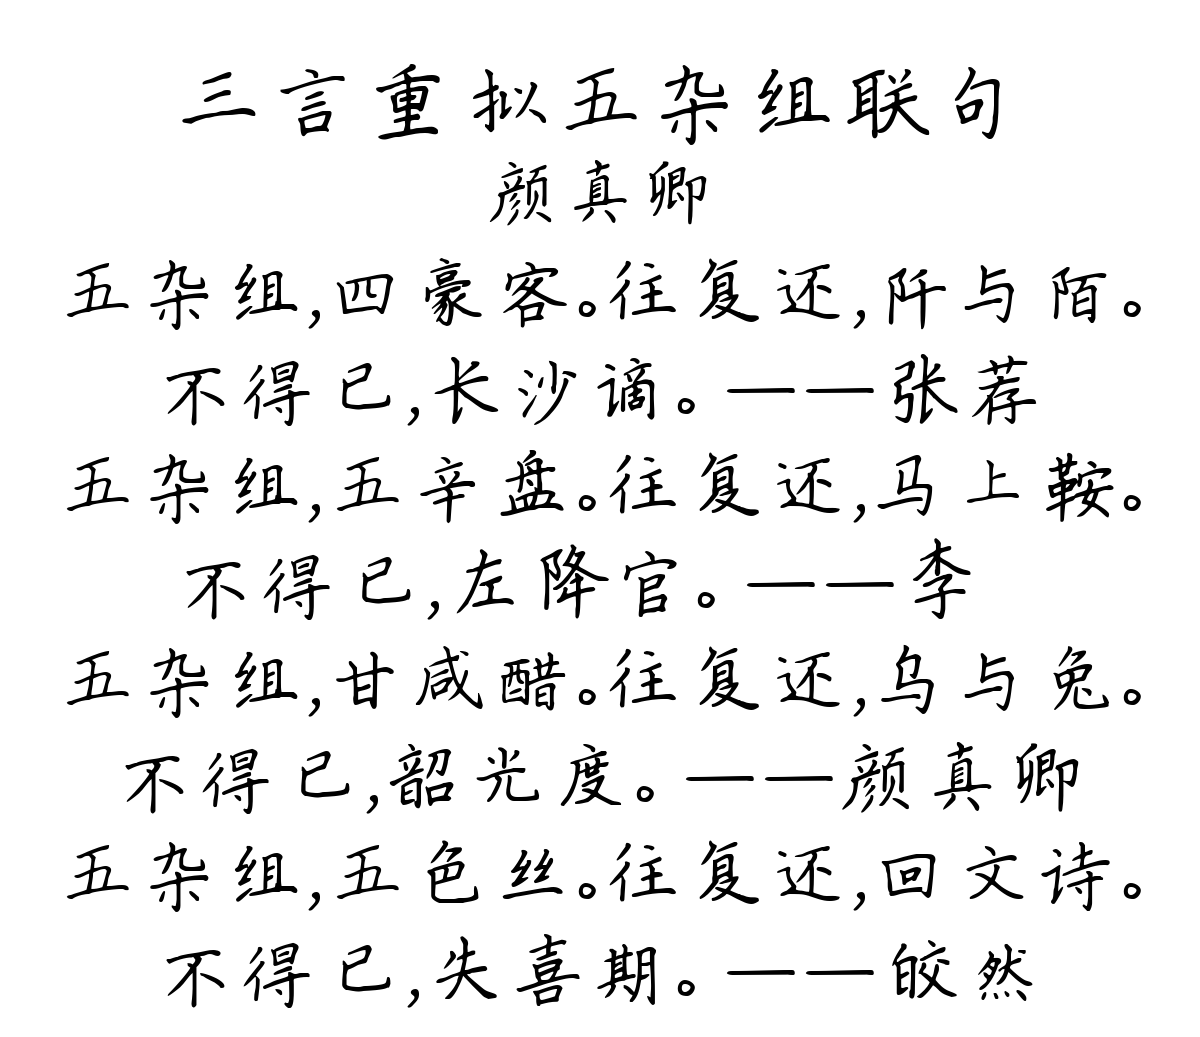 三言重拟五杂组联句
颜真卿
五杂组,四豪客。往复还,阡与陌。
不得已,长沙谪。——张荐
五杂组,五辛盘。往复还,马上鞍。
不得已,左降官。——李
五杂组,甘咸醋。往复还,乌与兔。
不得已,韶光度。——颜真卿
五杂组,五色丝。往复还,回文诗。
不得已,失喜期。——皎然